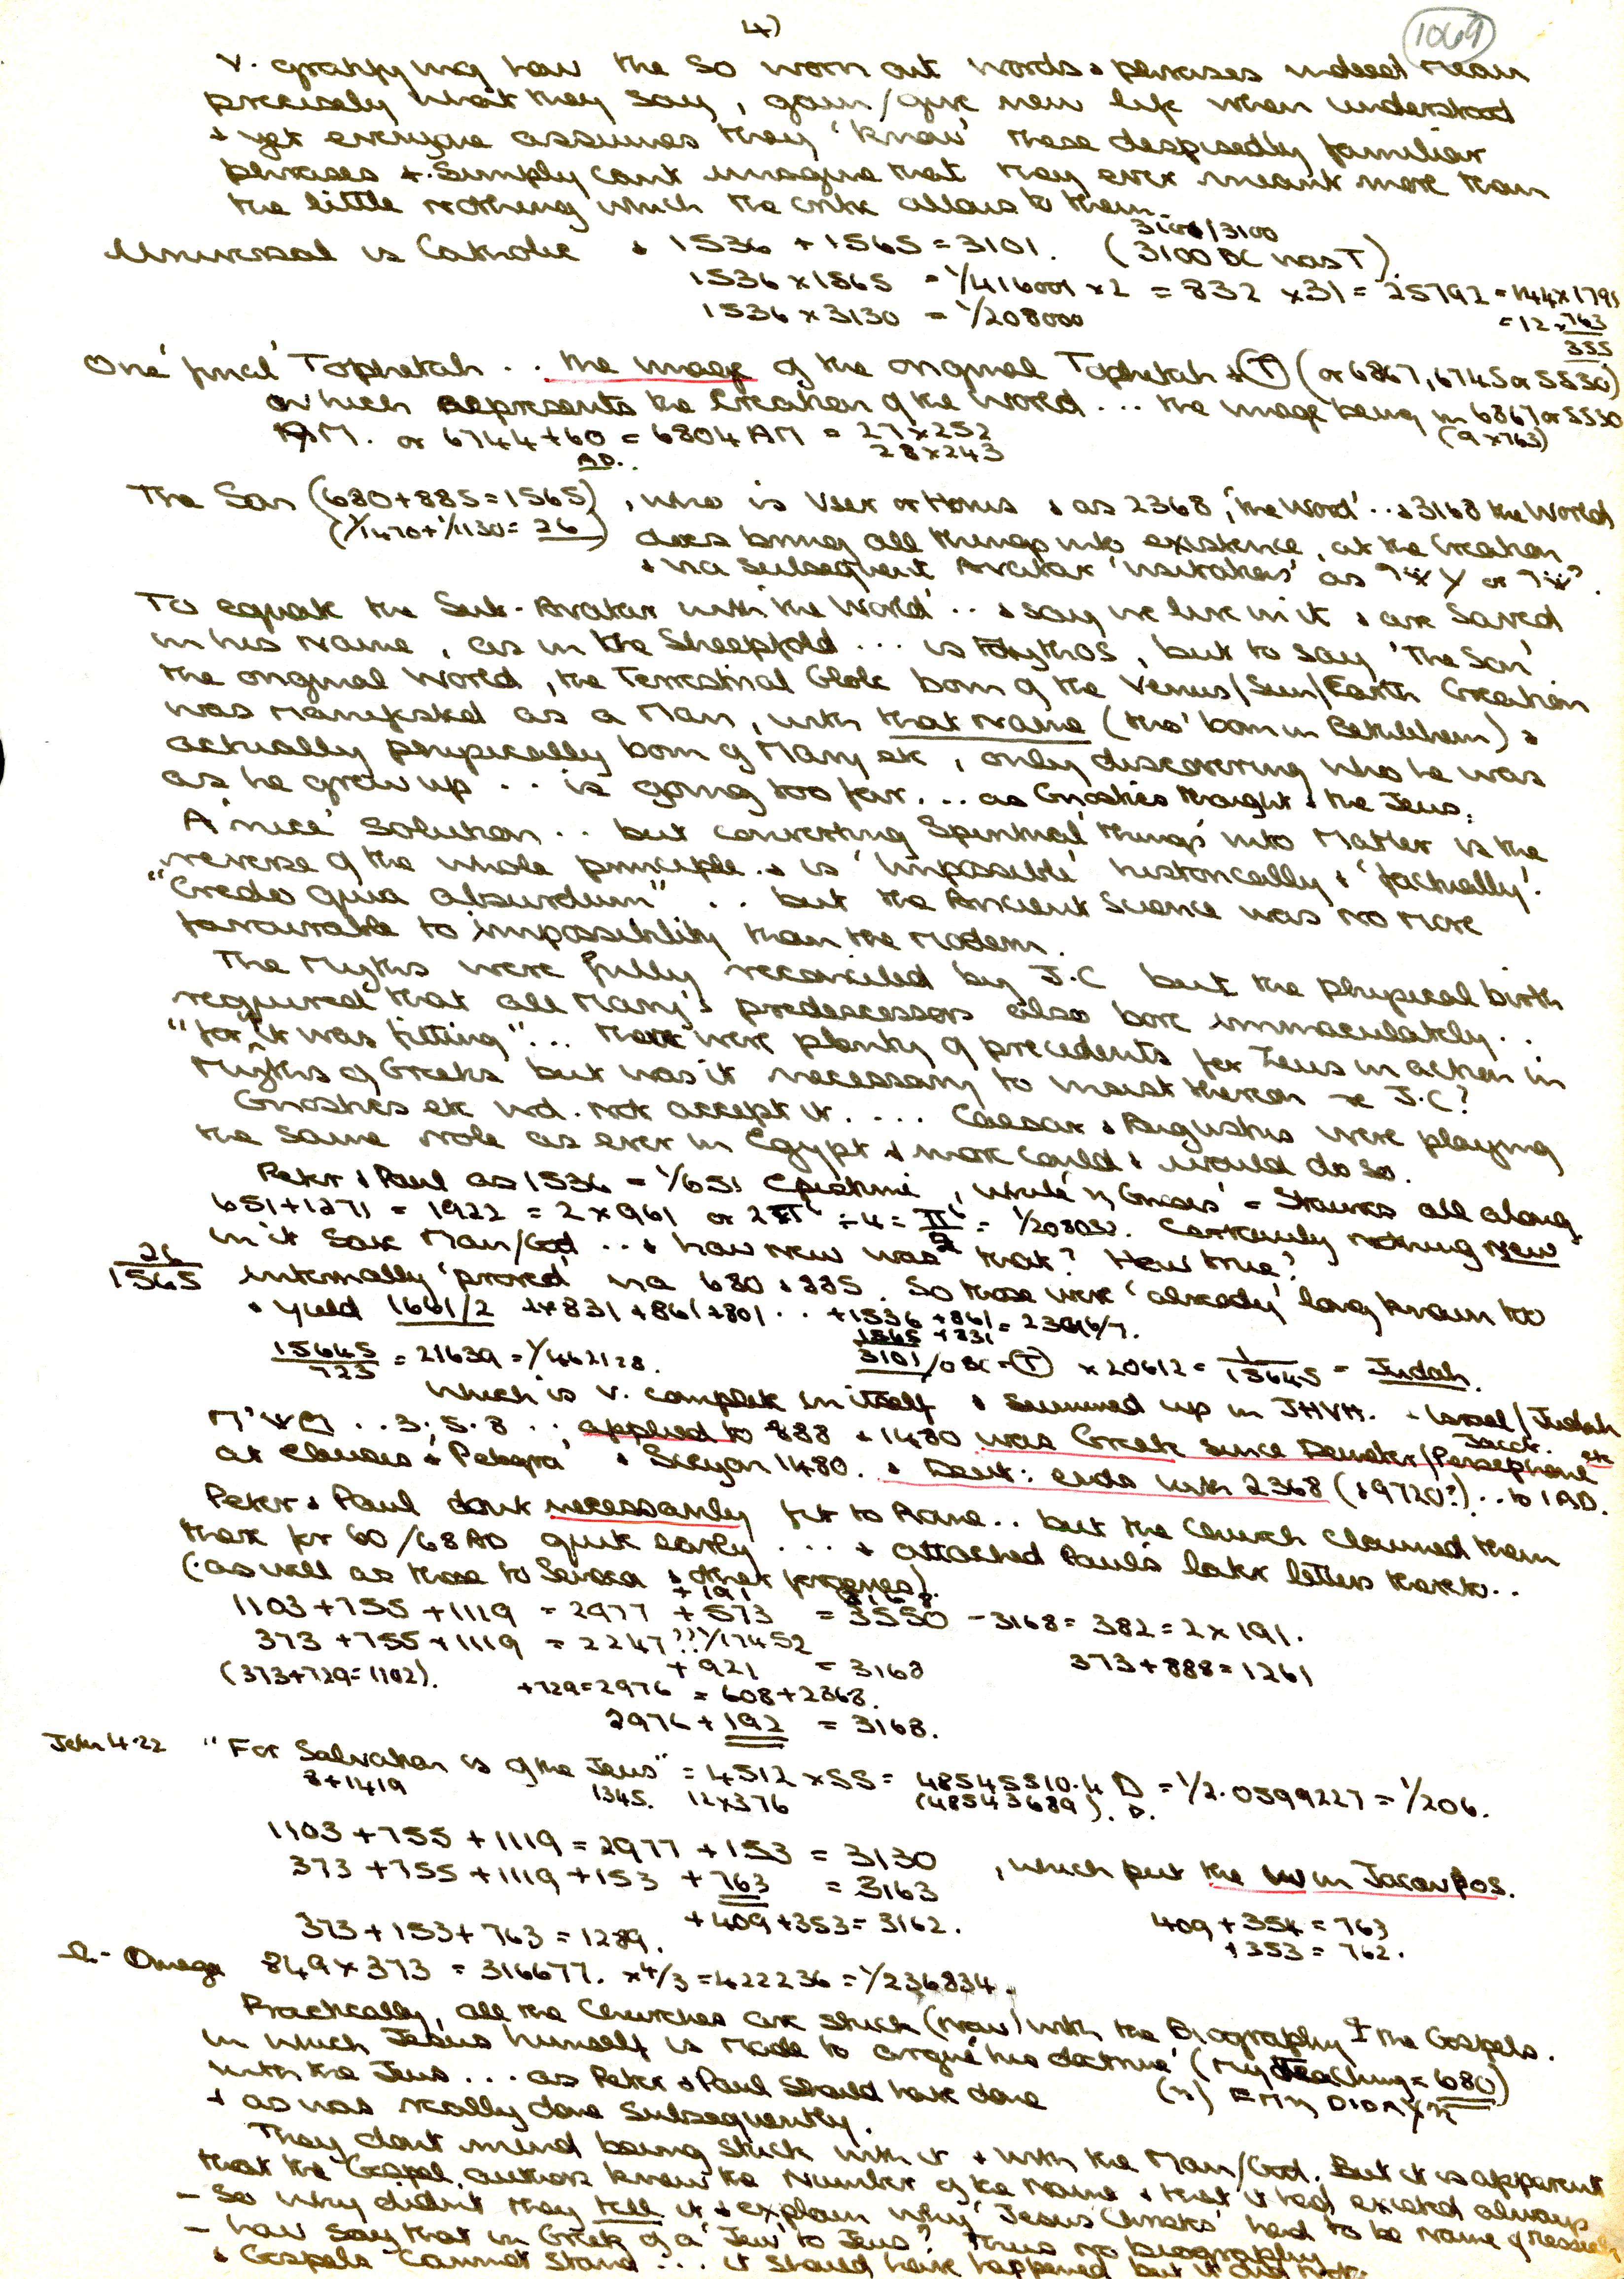 4)
1069
v. gratifying how the so worn out words & phrases indeed mean
precisely what they say, gain/give new life when understood
& yet everyone assumes they 'know' these despisedly familiar
phrases & simply cant imagine that they ever meant more than
the little nothing which the critic allows to them.
3101/3100
Universal is Catholic & 1536 + 1565 = 3101. (3100 BC was T).
1536 x 1565 = 1/416001 x 2 = 832 x 31 = 25792 = 144 x 1791
1536 x 3130 = 1/208000
= 12 x 763
355
One 'final' Tophetah .. the image of the original Tophetah & T (or 6867, 6745 or 5530)
which represents the Creation of the World ... the image being in 6867 or 5530
AM. or 6744 + 60 = 6804 AM = 27 x 252
(9 x 763)
AD.. 28 x 243
The Son (680 + 885 = 1565), who is User or Horus & as 2368, 'the Word' .. & 3168 the World
(1/1470 + 1/1130 = 26) does bring all things into existence, at the Creation
& via subsequent Avatar 'visitations' as
To equate the Sub-Avatar with the World .. & say we live in it & are saved
in his name, as in the Sheepfold ... is Mythos, but to say 'The Son'
the original World, the Terrestrial Globe born of the Venus/Sun/Earth Creation
was manifested as a Man, with that name (tho' born in Bethlehem) &
actually physically born of Mary etc, only discovering who he was
as he grew up .. is going too far ... as Gnostics thought & the Jews.
A 'nice' solution .. but converting Spiritual things into Matter is the
reverse of the whole principle .. & is 'impossible' historically & 'factually'.
"Credo quia absurdum" .. but the Ancient Science was no more
favourable to impossibility than the Modern.
The Myths were fully reconciled by J.C but the physical birth
required that all Mary's predecessors also bore immaculately ..
"for it was fitting" ... there were plenty of precedents for Zeus in action in
Myths of Greeks but was it necessary to insist thereon re J.C?
Gnostics etc wd. not accept it .... Caesar & Augustus were playing
the same role as ever in Egypt & more could & would do so.
Peter & Paul as 1536 = 1/651 Epistimi, while 'η Gnosis' = Stauros all along
651 + 1271 = 1922 = 2 x 961 or Certainly nothing new
in it save Man/God ... & how new was that? How true?
26
1565 internally 'proved' via 680 & 885. So these were 'already' long known too
& yield 1661/2 2x831 + 861 + 801 .. + 1536 + 861 = 23
1565 + 831
15645/723 = 21639 = 1/462128. 3101/0 BC = T x 20612 = 1/15645 = Judah.
which is v. complete in itself & summed up in JHVH. & Israel/Judah
.. 3; 5. 8 .. applied to 888 & 1480 was Greek since Demeter/Persephone etc
at Eleusis & & Sicyon 1480. & Deut: ends with 2368 (& 9720?) .. to 1 AD.
Peter & Paul dont necessarily fit to Rome .. but the Church claimed them
there for 60/68 AD quite early ... & attached Pauls later letters thereto ..
(as well as those to Seneca & other forgeries).
+ 191
1103 + 755 + 1119 = 2977 + 573 = 3550 - 3168 = 382 = 2 x 191.
373 + 755 + 1119 = 2247 ?? 1/17452
+ 921 = 3168 373 + 888 = 1261
(373 + 729 = 1102). + 729 = 2976 = 608 + 2368.
2976 + 192 = 3168.
John 4.22 "For Salvation is of the Jews" = 4512 x 55 = 48545510.4 D = 1/2.0599227 = 1/206.
8 + 1419 1345. 12 x 376 (48543689). D.
1103 + 755 + 1119 = 2977 + 153 = 3130, which put the in Jason pos.
373 + 755 + 1119 + 153 + 763 = 3163
+ 409 + 353 = 3162. 409 + 354 = 763
373 + 153 + 763 = 1289. + 353 = 762.
Ω - Omega 849 x 373 = 316677. x 4/3 = 422236 = 1/236834.
Practically, all the Churches are stuck (now) with the Biography & the Gospels.
in which Jesus himself is made to argue his 'doctrine' (My Teaching = 680)
with the Jews ... as Peter & Paul should have done (η) ΕΜη DIDAXη
& as was really done subsequently.
They dont mind being stuck with it & with the Man/God. But it is apparent
that the Gospel authors knew the Number of the Name & that it had existed always
- So why didnt they tell it & explain why 'Jesus Christos' had to be name of Messiah
- how say that in Greek of a 'Jew' to Jews? Thus no biography
& Gospels cannot stand ... it should have happened but it did not.